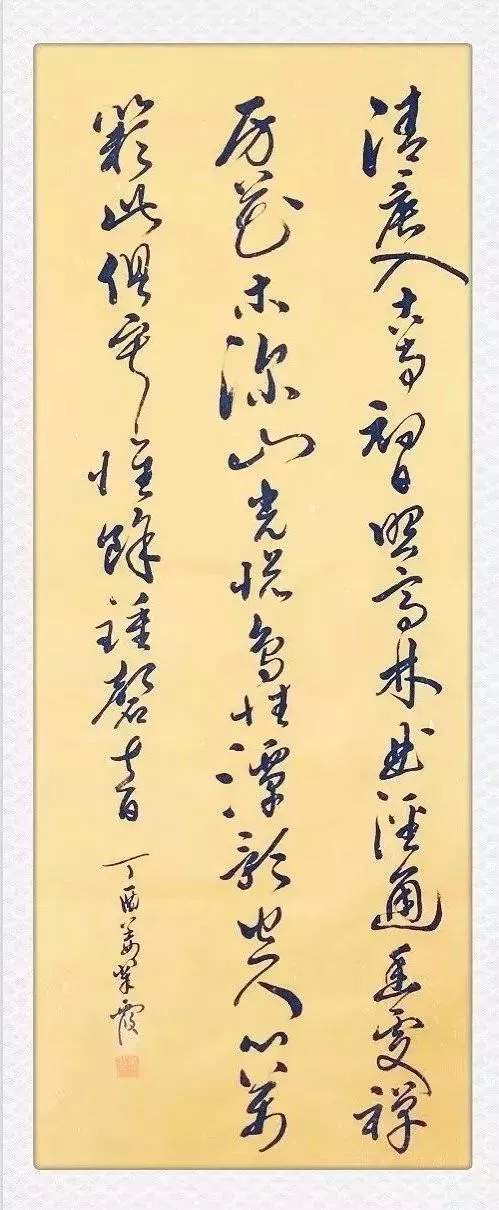 清晨入古寺初日照高林曲徑通幽處禪
房花木深山光悦鳥性潭影空人心萬
籟此俱寂惟餘鍾磬音
丁酉姜霞